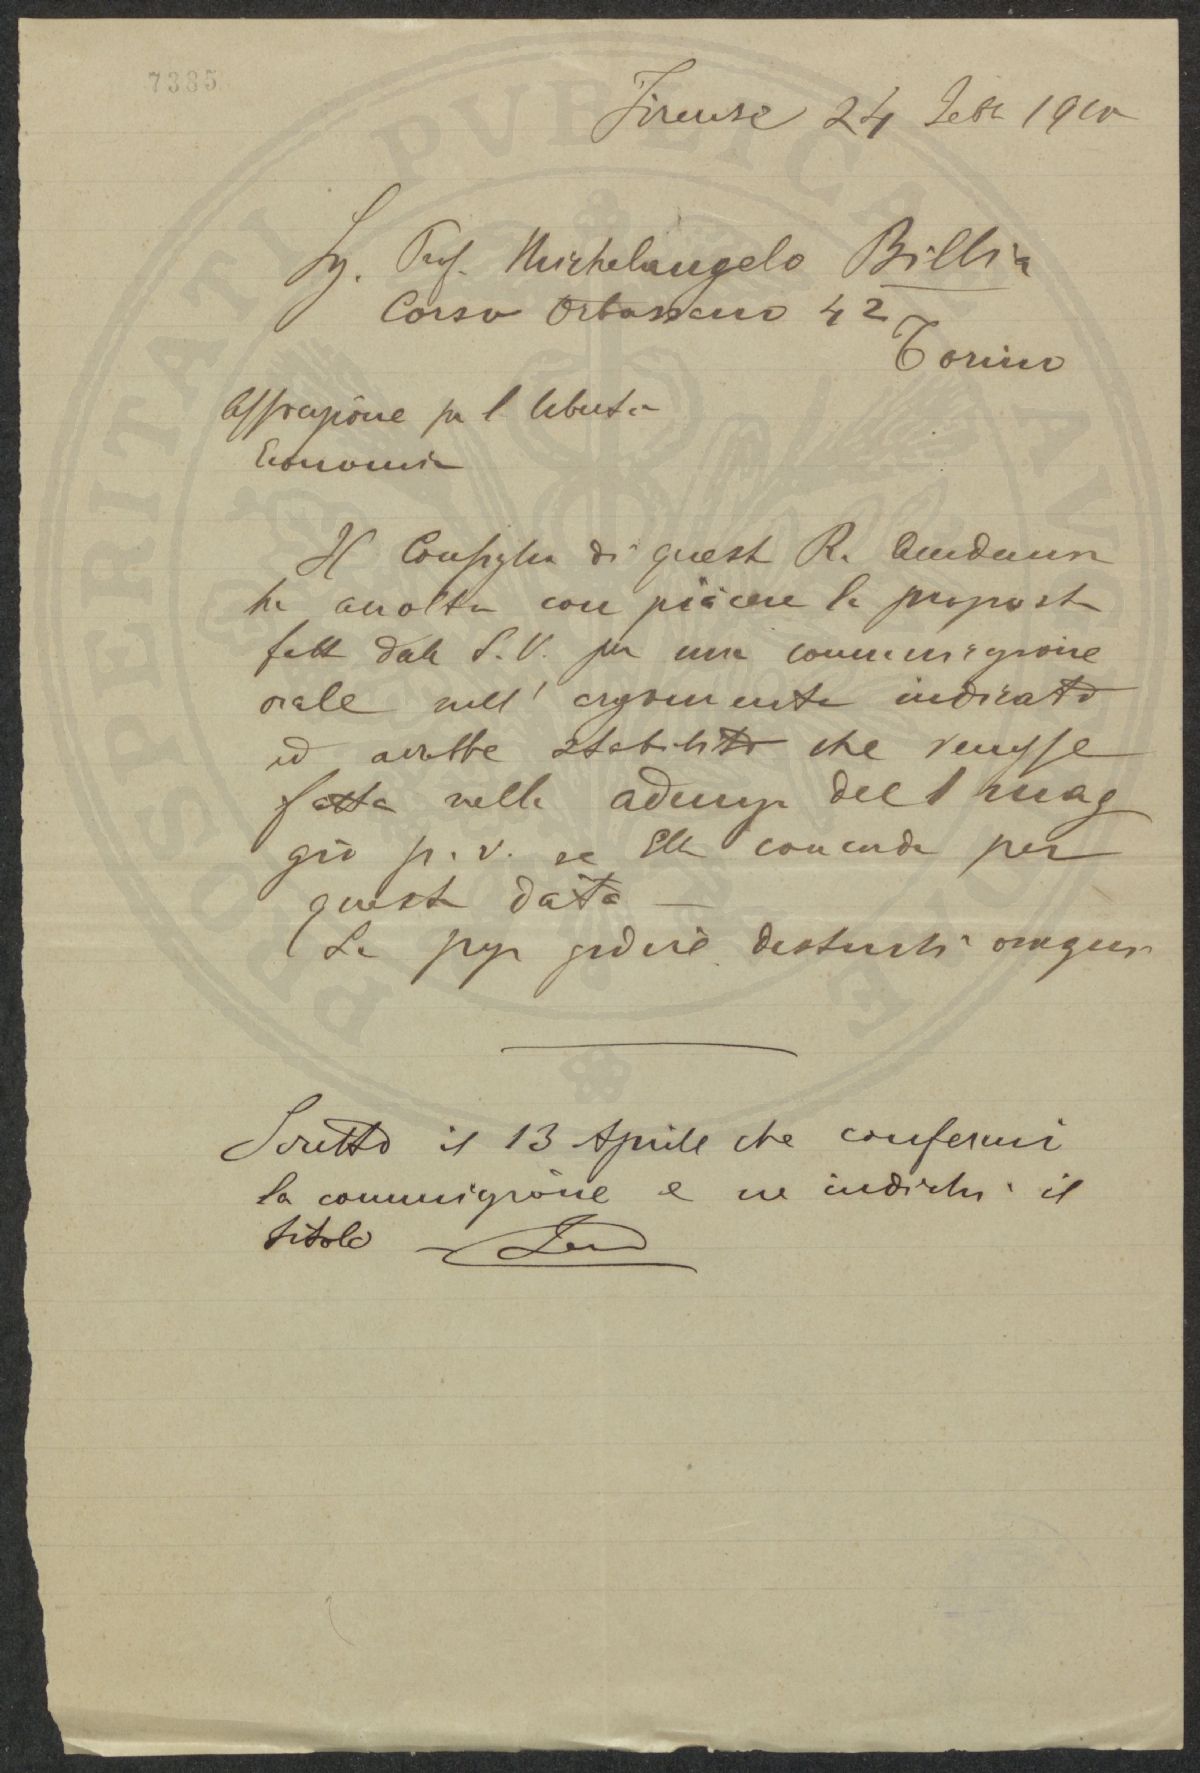 7385
Firenze 24 Febb 1910
Sig. Prof. Michelangelo Billia
Corso Orbassano 42
Torino
Associazione per l liberta
Economia
Il Consiglio di quest R. Accademia
ha accolta con piacere la proposta
fatt dalla S.V. per una comunicazione
orale nell' argomento indicato
ed avrebbe stabilito che venisse
fatta nella adunza del 1 mag
gio p. v. se Ella concorda per
questa data —
La prego gradire distinti ossequi
Scritto il 13 Aprile che confermi
la comunicazione e ne indichi il
titolo
PROSPERITATI PVBLICAE AVGENDAE